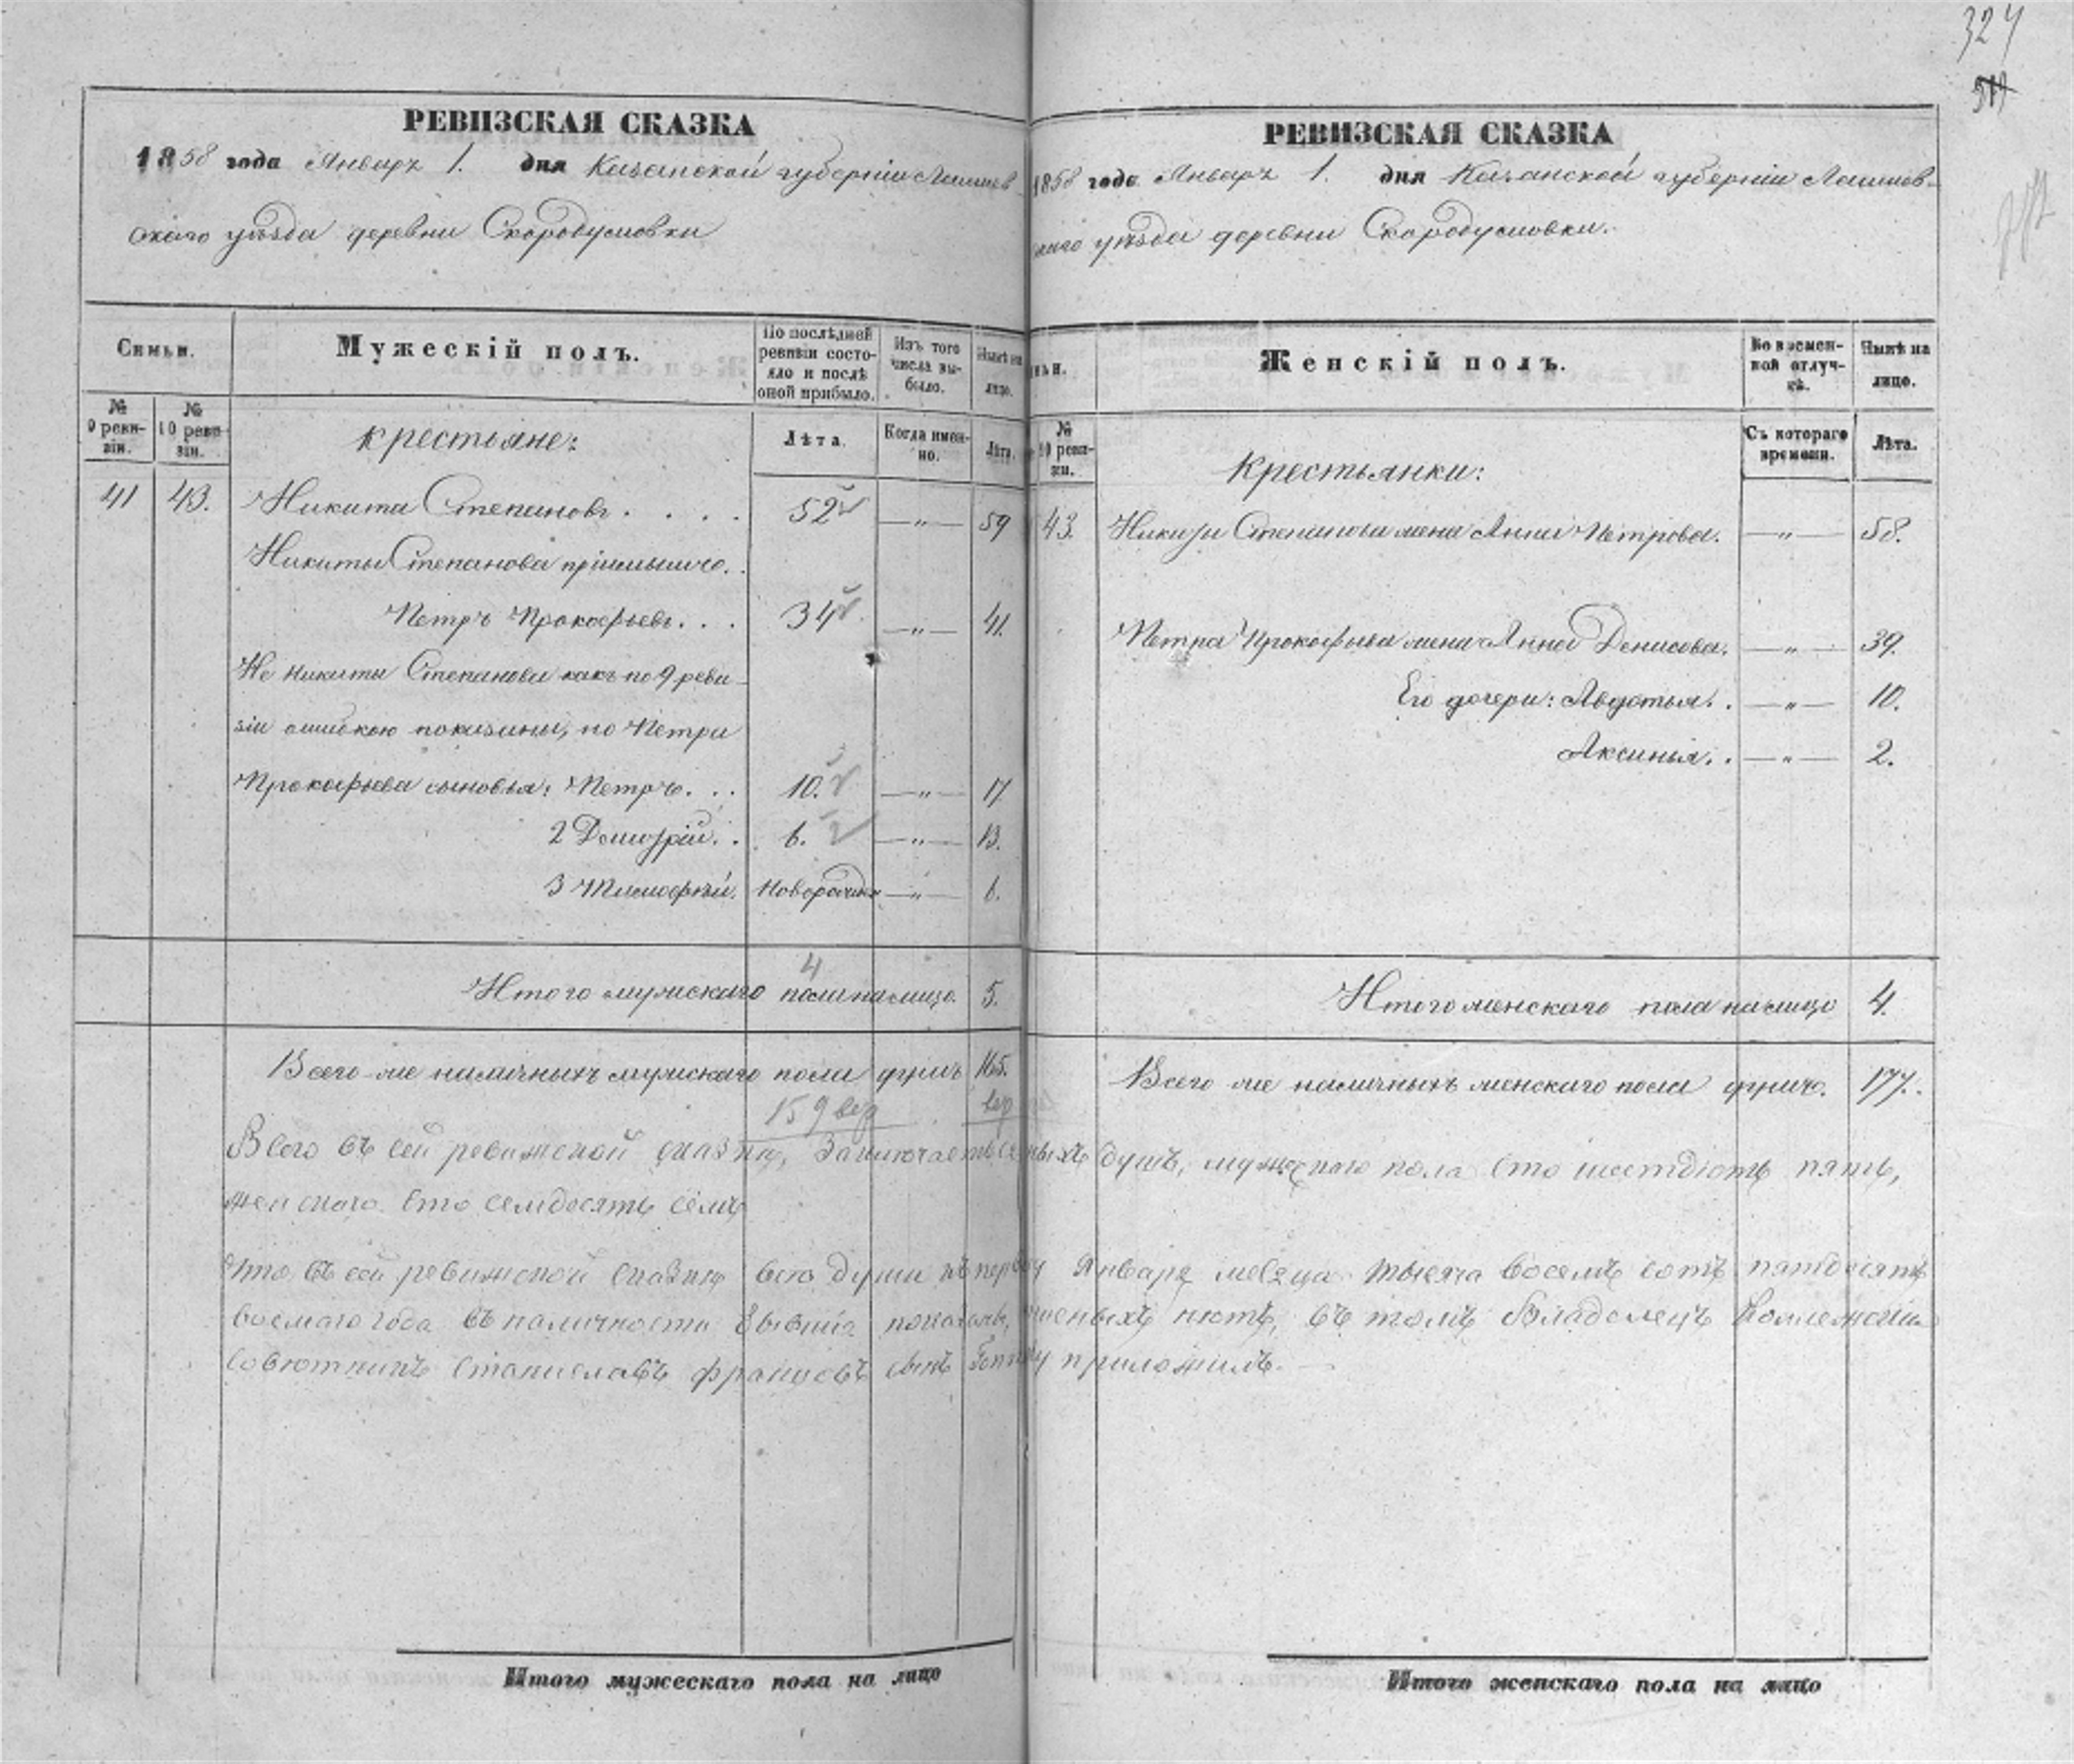 324
РЕВИЗСКАЯ СКАЗКА
1858 года Январъ 1. дня Казанской губерніи Лаишев-
скаго уѣзда деревни Скородумовки
Семьи.
Мужескій полъ.
По послѣдней ревизіи состояло и послѣ оной прибыло.
Изъ того числа выбыло.
Нынѣ на лицо.
№ 9 ревизіи.
№ 10 ревизіи.
Крестьяне:
Лѣта.
Когда именно.
Лѣта.
41 43. Никита Степановъ . . . . 52 —„— 59
Никиты Степанова пріимышъ . .
Петръ Прокофьевъ . . . 34 —„— 41.
Не Никиты Степанова какъ по 9 реви-
зіи ошибкою показаны, но Петра
Прокофьева сыновья: Петръ. . . 10. —„— 17
2 Дмитрій. . 6. —„— 13.
3 Тимофѣй. Новорожден —„— 6.
4
Итого мужскаго пола налицо. 5.
Всего же наличныхъ мужскаго пола душъ 165.
159 вер вер
РЕВИЗСКАЯ СКАЗКА
1858 года Январъ 1. дня Казанской губерніи Лаишев-
скаго уѣзда деревни Скородумовки.
ньи.
Женскій полъ.
Во временной отлучкѣ.
Нынѣ на лицо.
№ 10 ревизіи.
Крестьянки:
Съ котораго времени.
Лѣта.
43. Никиты Степанова жена Анна Петрова. —„— 58.
Петра Прокофьева жена Анна Денисова. —„— 39.
Его дочери: Авдотья. . —„— 10.
Аксинья. . —„— 2.
Итого женскаго пола налицо 4.
Всего же наличныхъ женскаго пола душъ. 177.
Всего въ сей ревижской сказки, душъ, мужескаго пола сто шестдіотъ пять,
женскаго сто семдесятъ семъ
Что въ сей ревижской сказки всѣ души къ перьву Января месяца тысяча восемъ сотъ пятдесятъ
восмаго года въ наличности бывшіе показаны, нѣтъ, въ томъ Владелецъ
советникъ Станиславъ Францовъ сынъ приложилъ.
Итого мужескаго пола на лицо
Итого женскаго пола на лицо